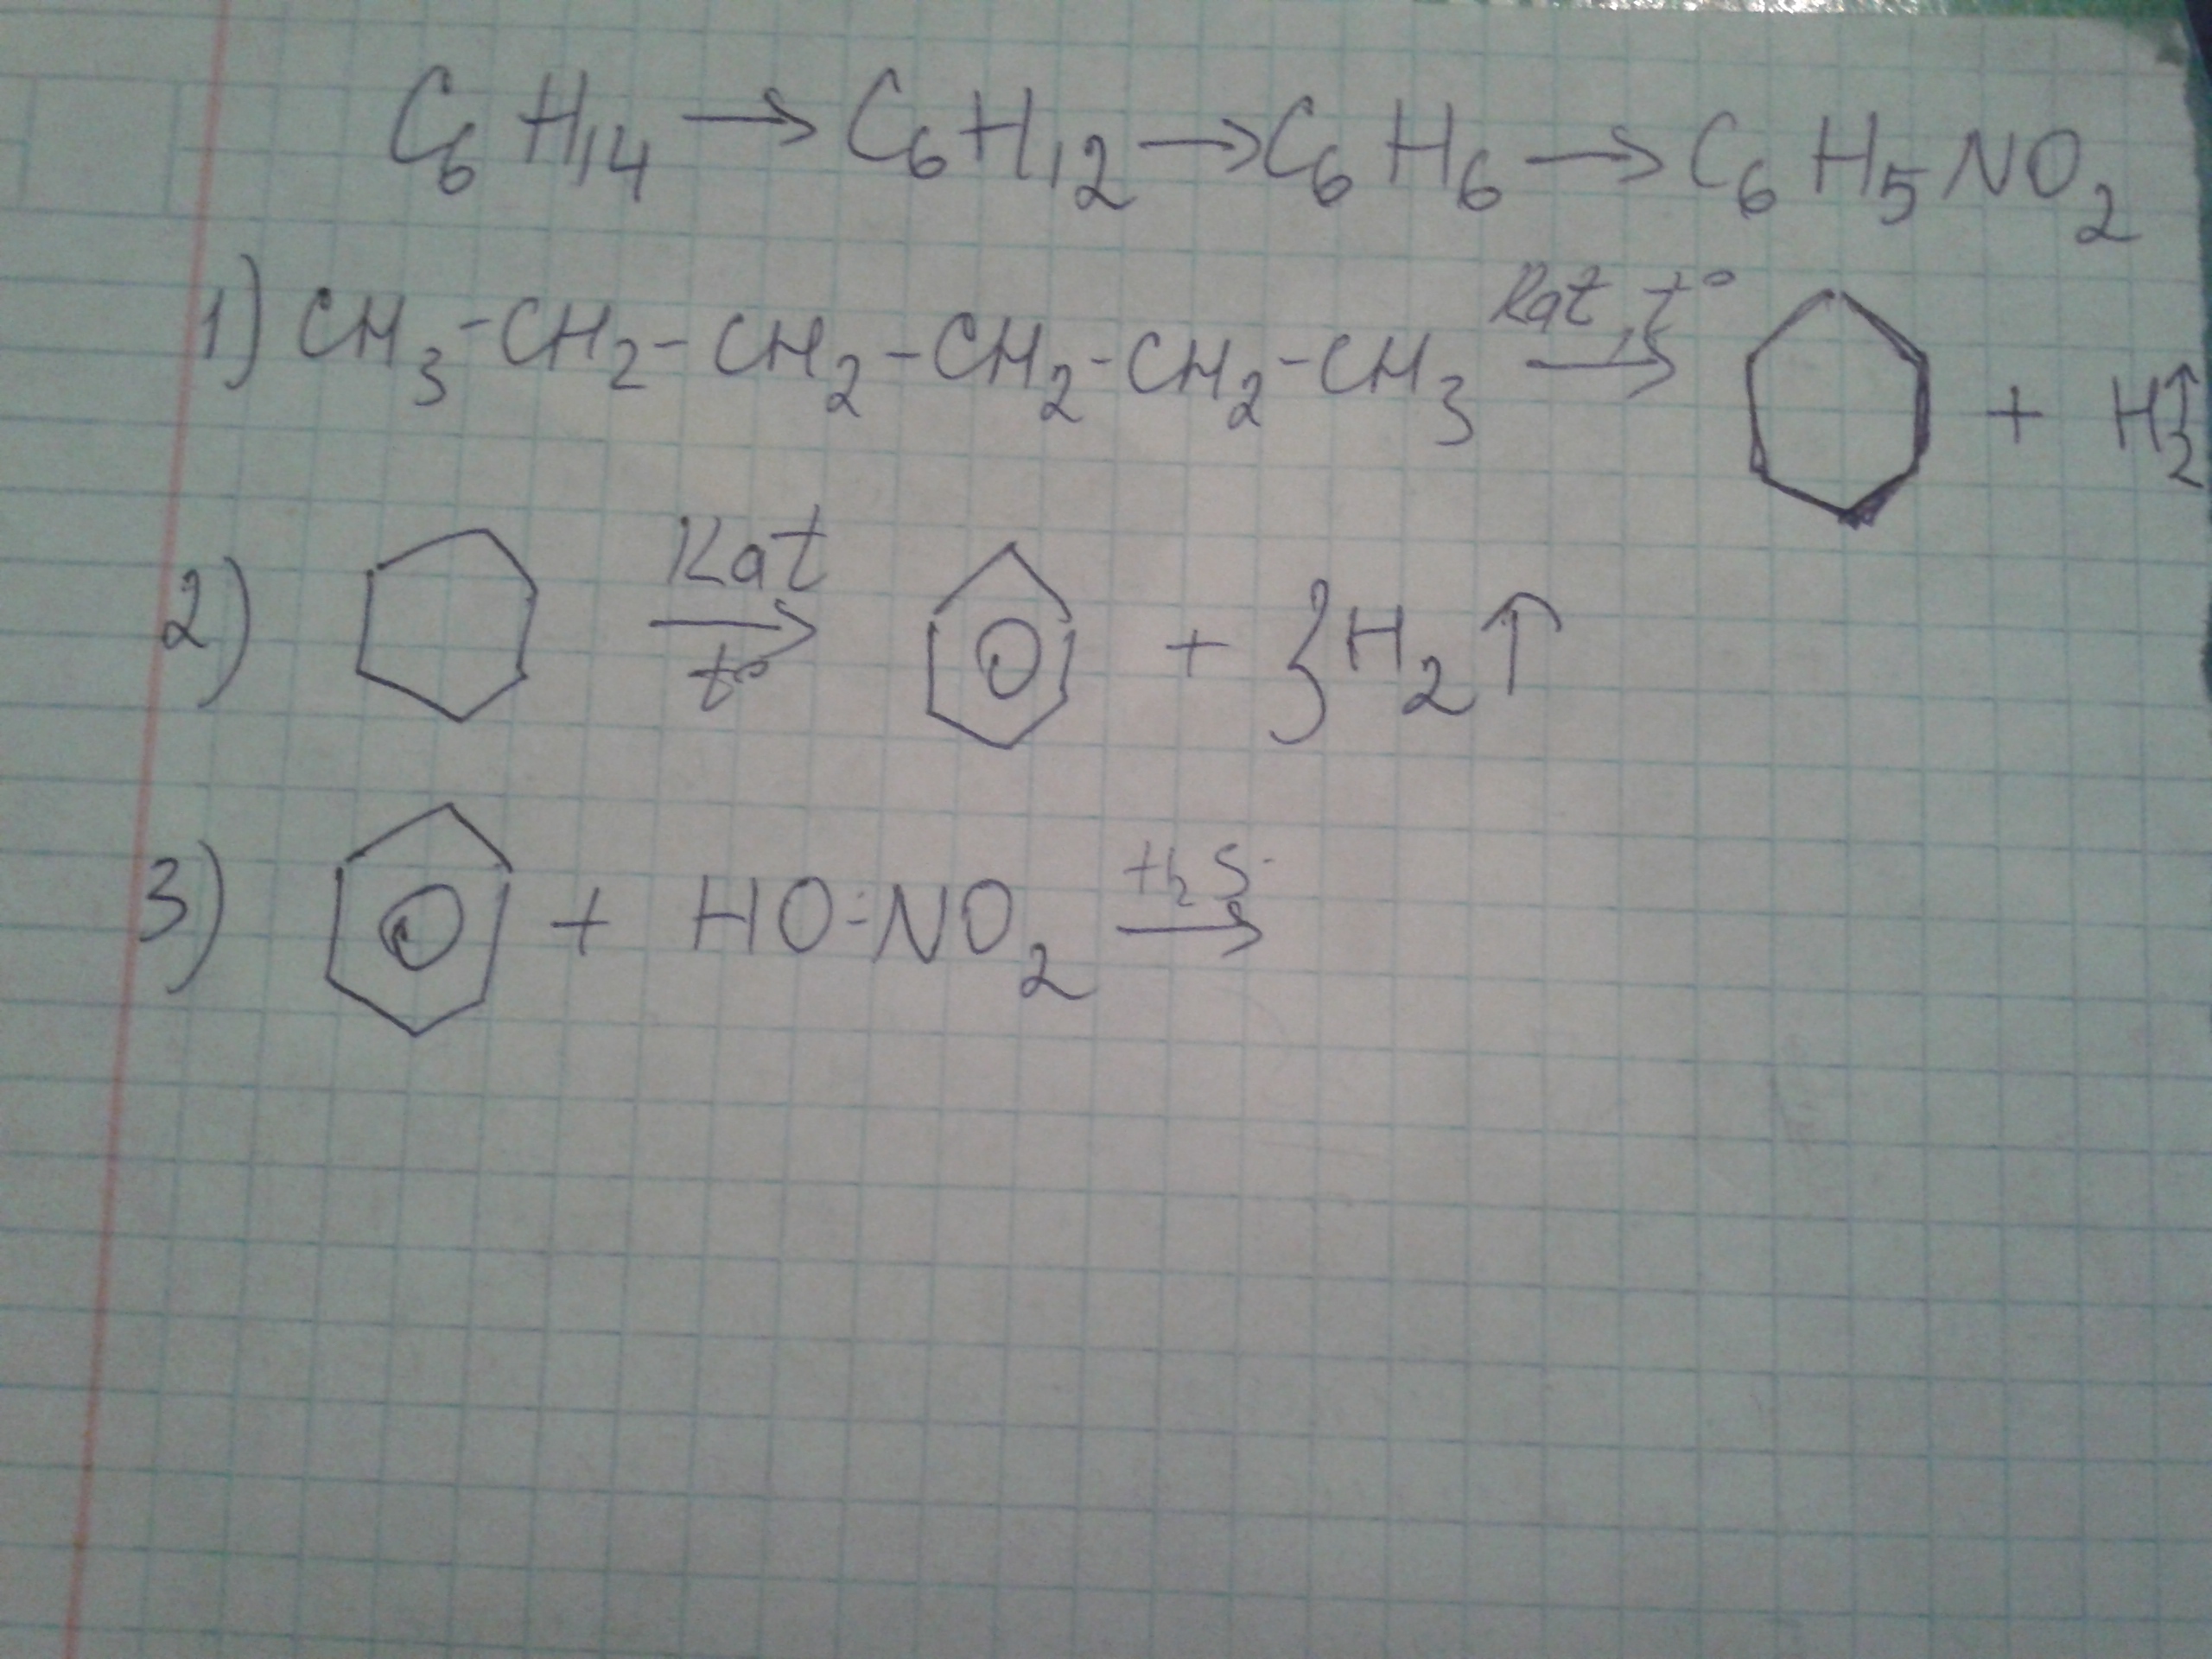 C₆H₁₄ → C₆H₁₂ → C₆H₆ → C₆H₅NO₂
1) CH₃-CH₂-CH₂-CH₂-CH₂-CH₃ Kat, t° → + H₂↑
2) Kat → t° + 3H₂↑
3) + HO-NO₂ H₂S →